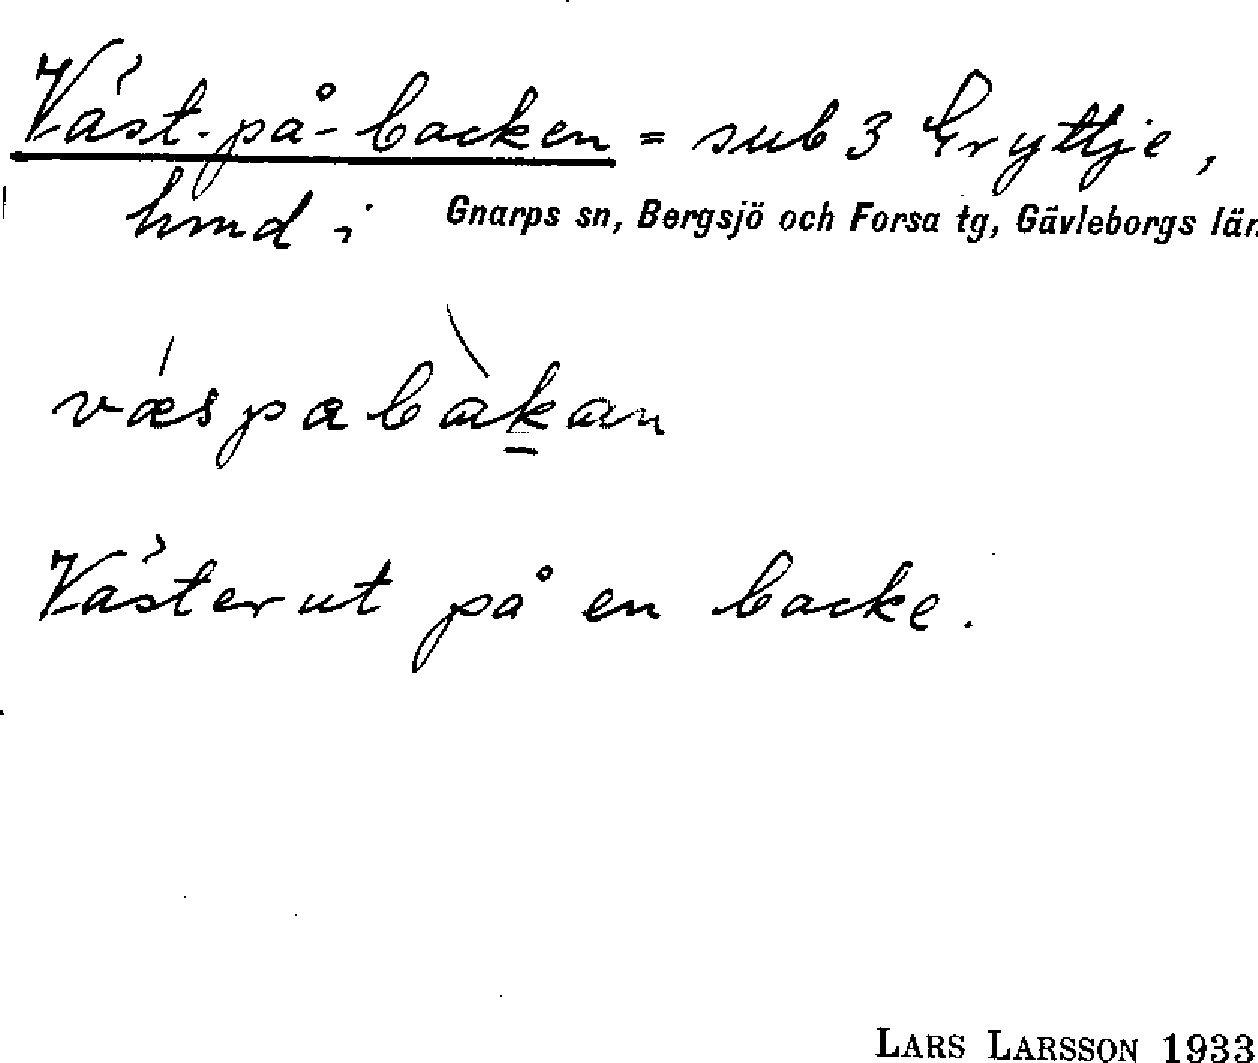 Väst-på-backen = sub 3 Gryttje,
hmd i Gnarps sn, Bergsjö och Forsa tg, Gävleborgs län
vǽspabàkan
Västerut på en backe.
LARS LARSSON 1933